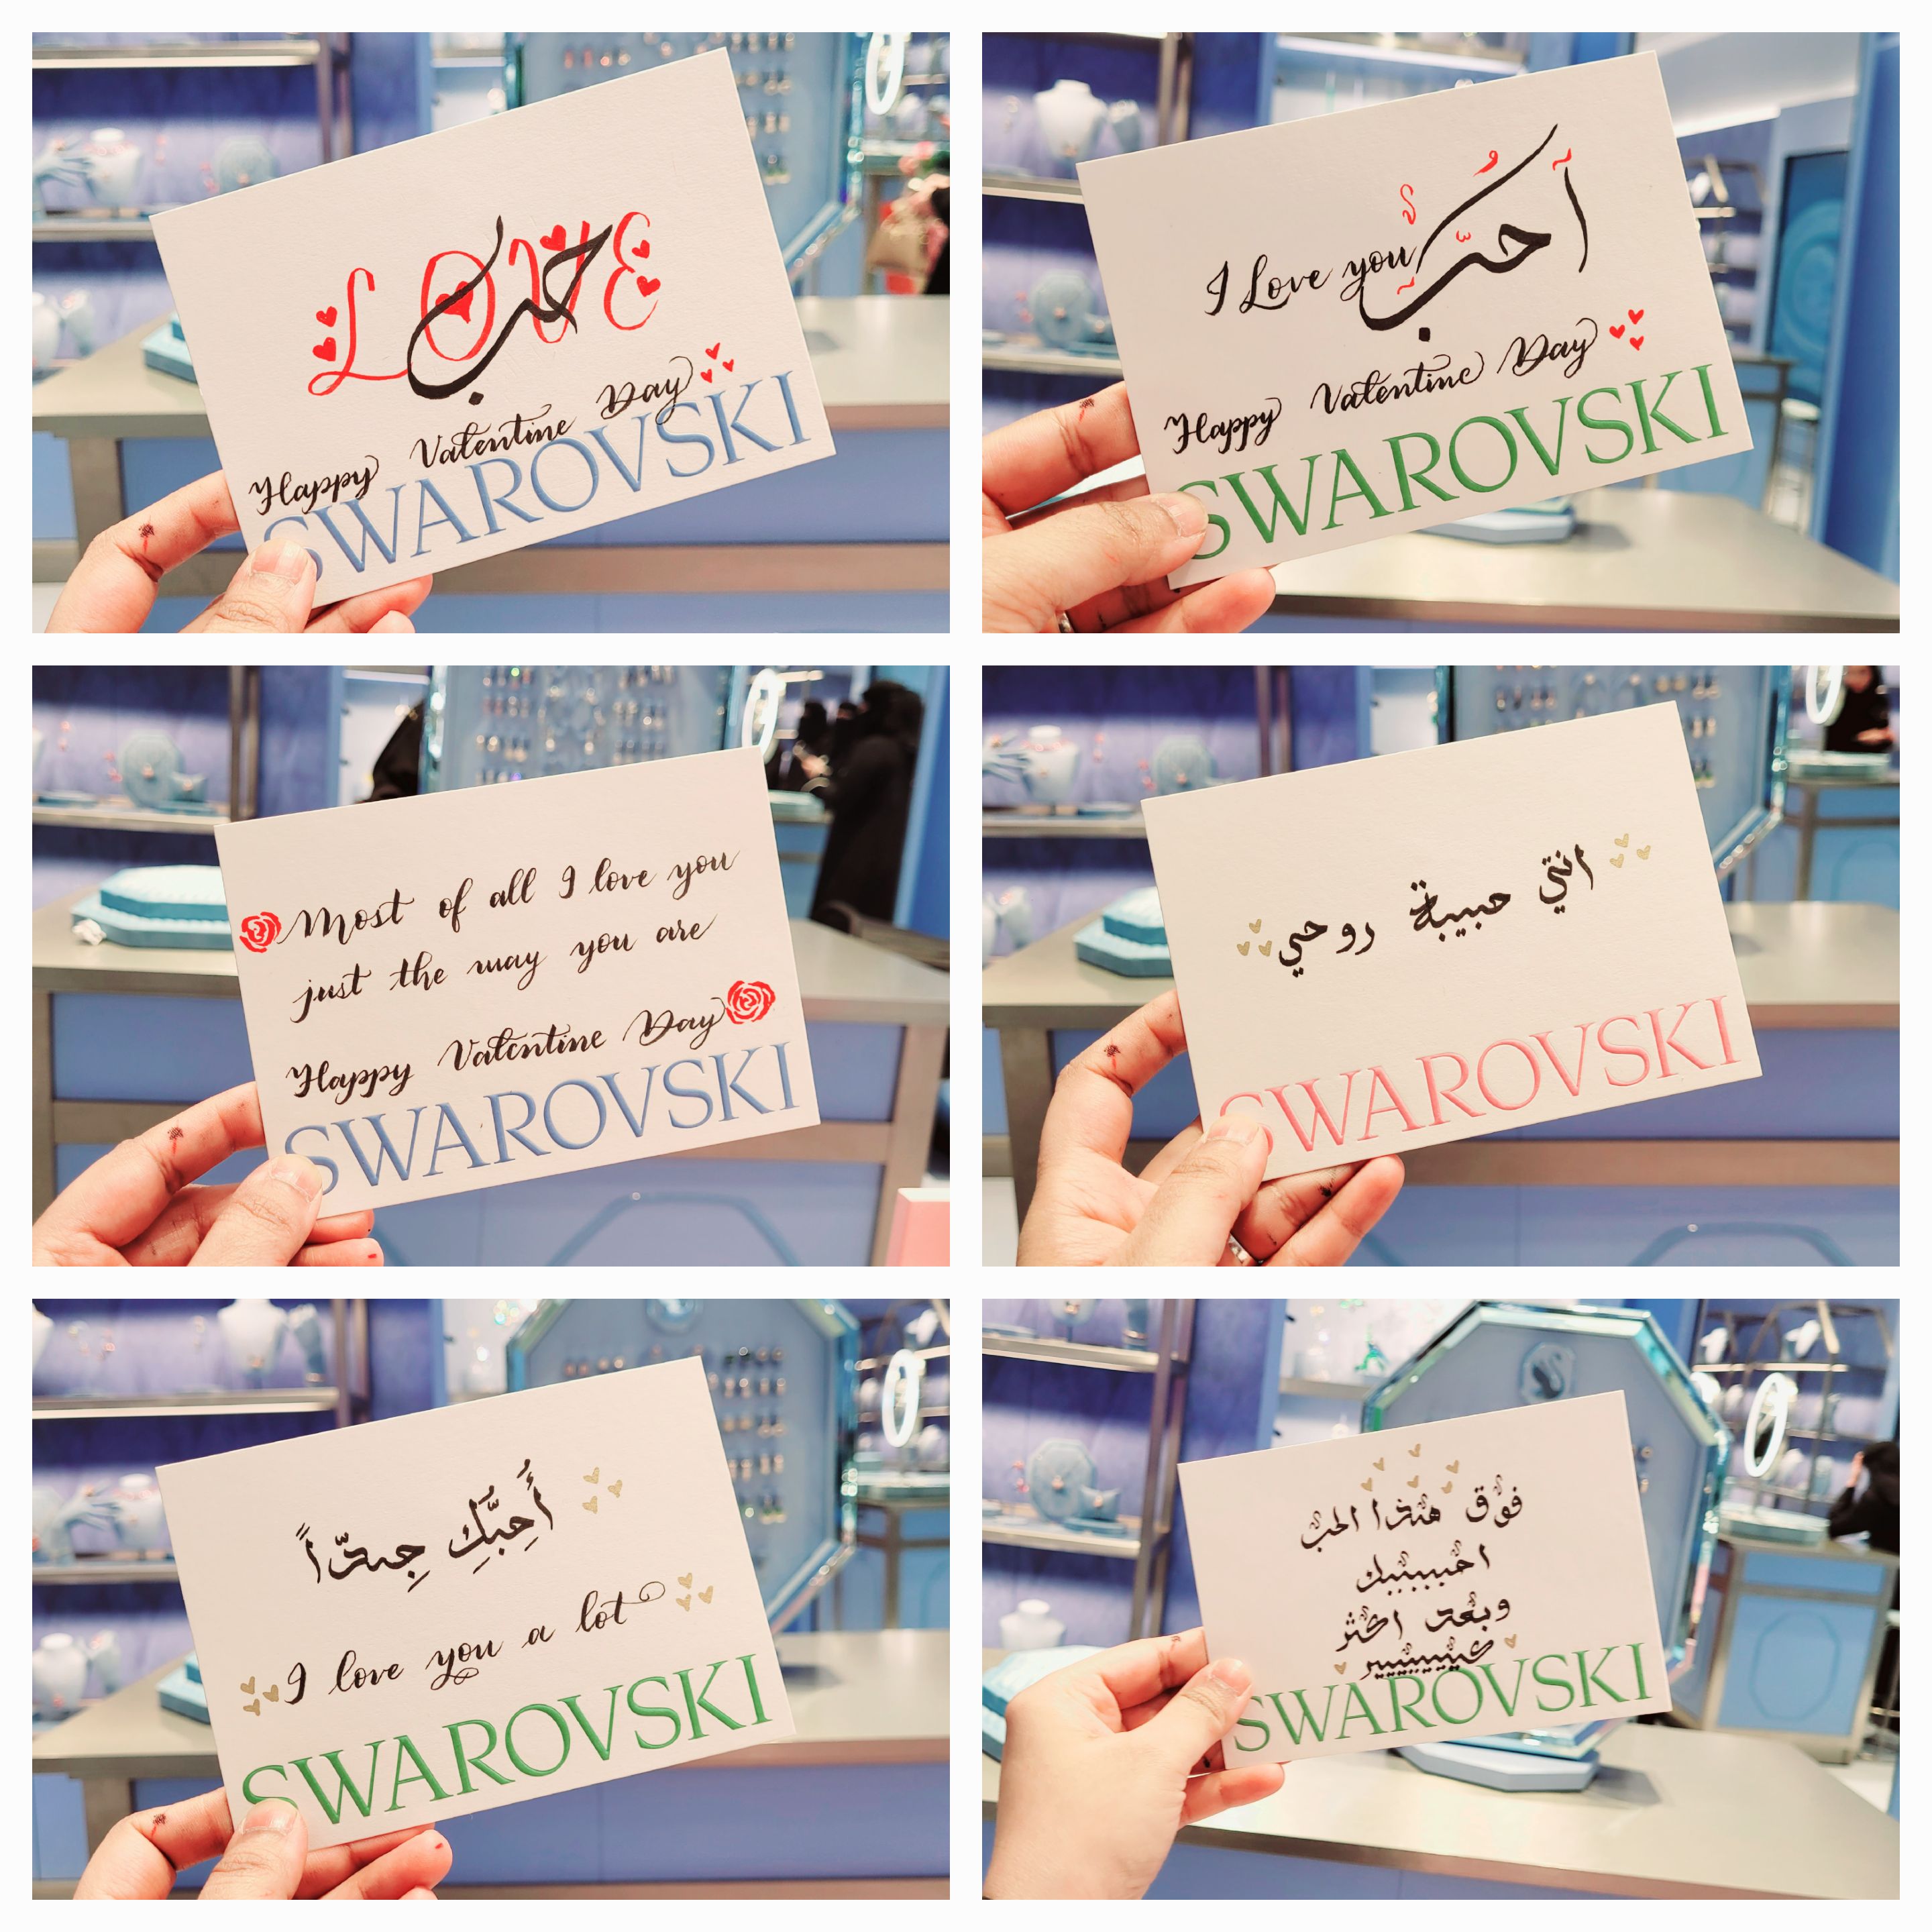 LOVE
حب
Happy Valentine Day
SWAROVSKI
أحبّ
I Love you
Happy Valentine Day
SWAROVSKI
Most of all I love you
just the way you are
Happy Valentine Day
SWAROVSKI
انتي حبيبة روحي
SWAROVSKI
أُحِبُّكِ جِدّاً
I love you a lot
SWAROVSKI
فوق هذا الحب
احبببببك
وبعد اكثر
SWAROVSKI